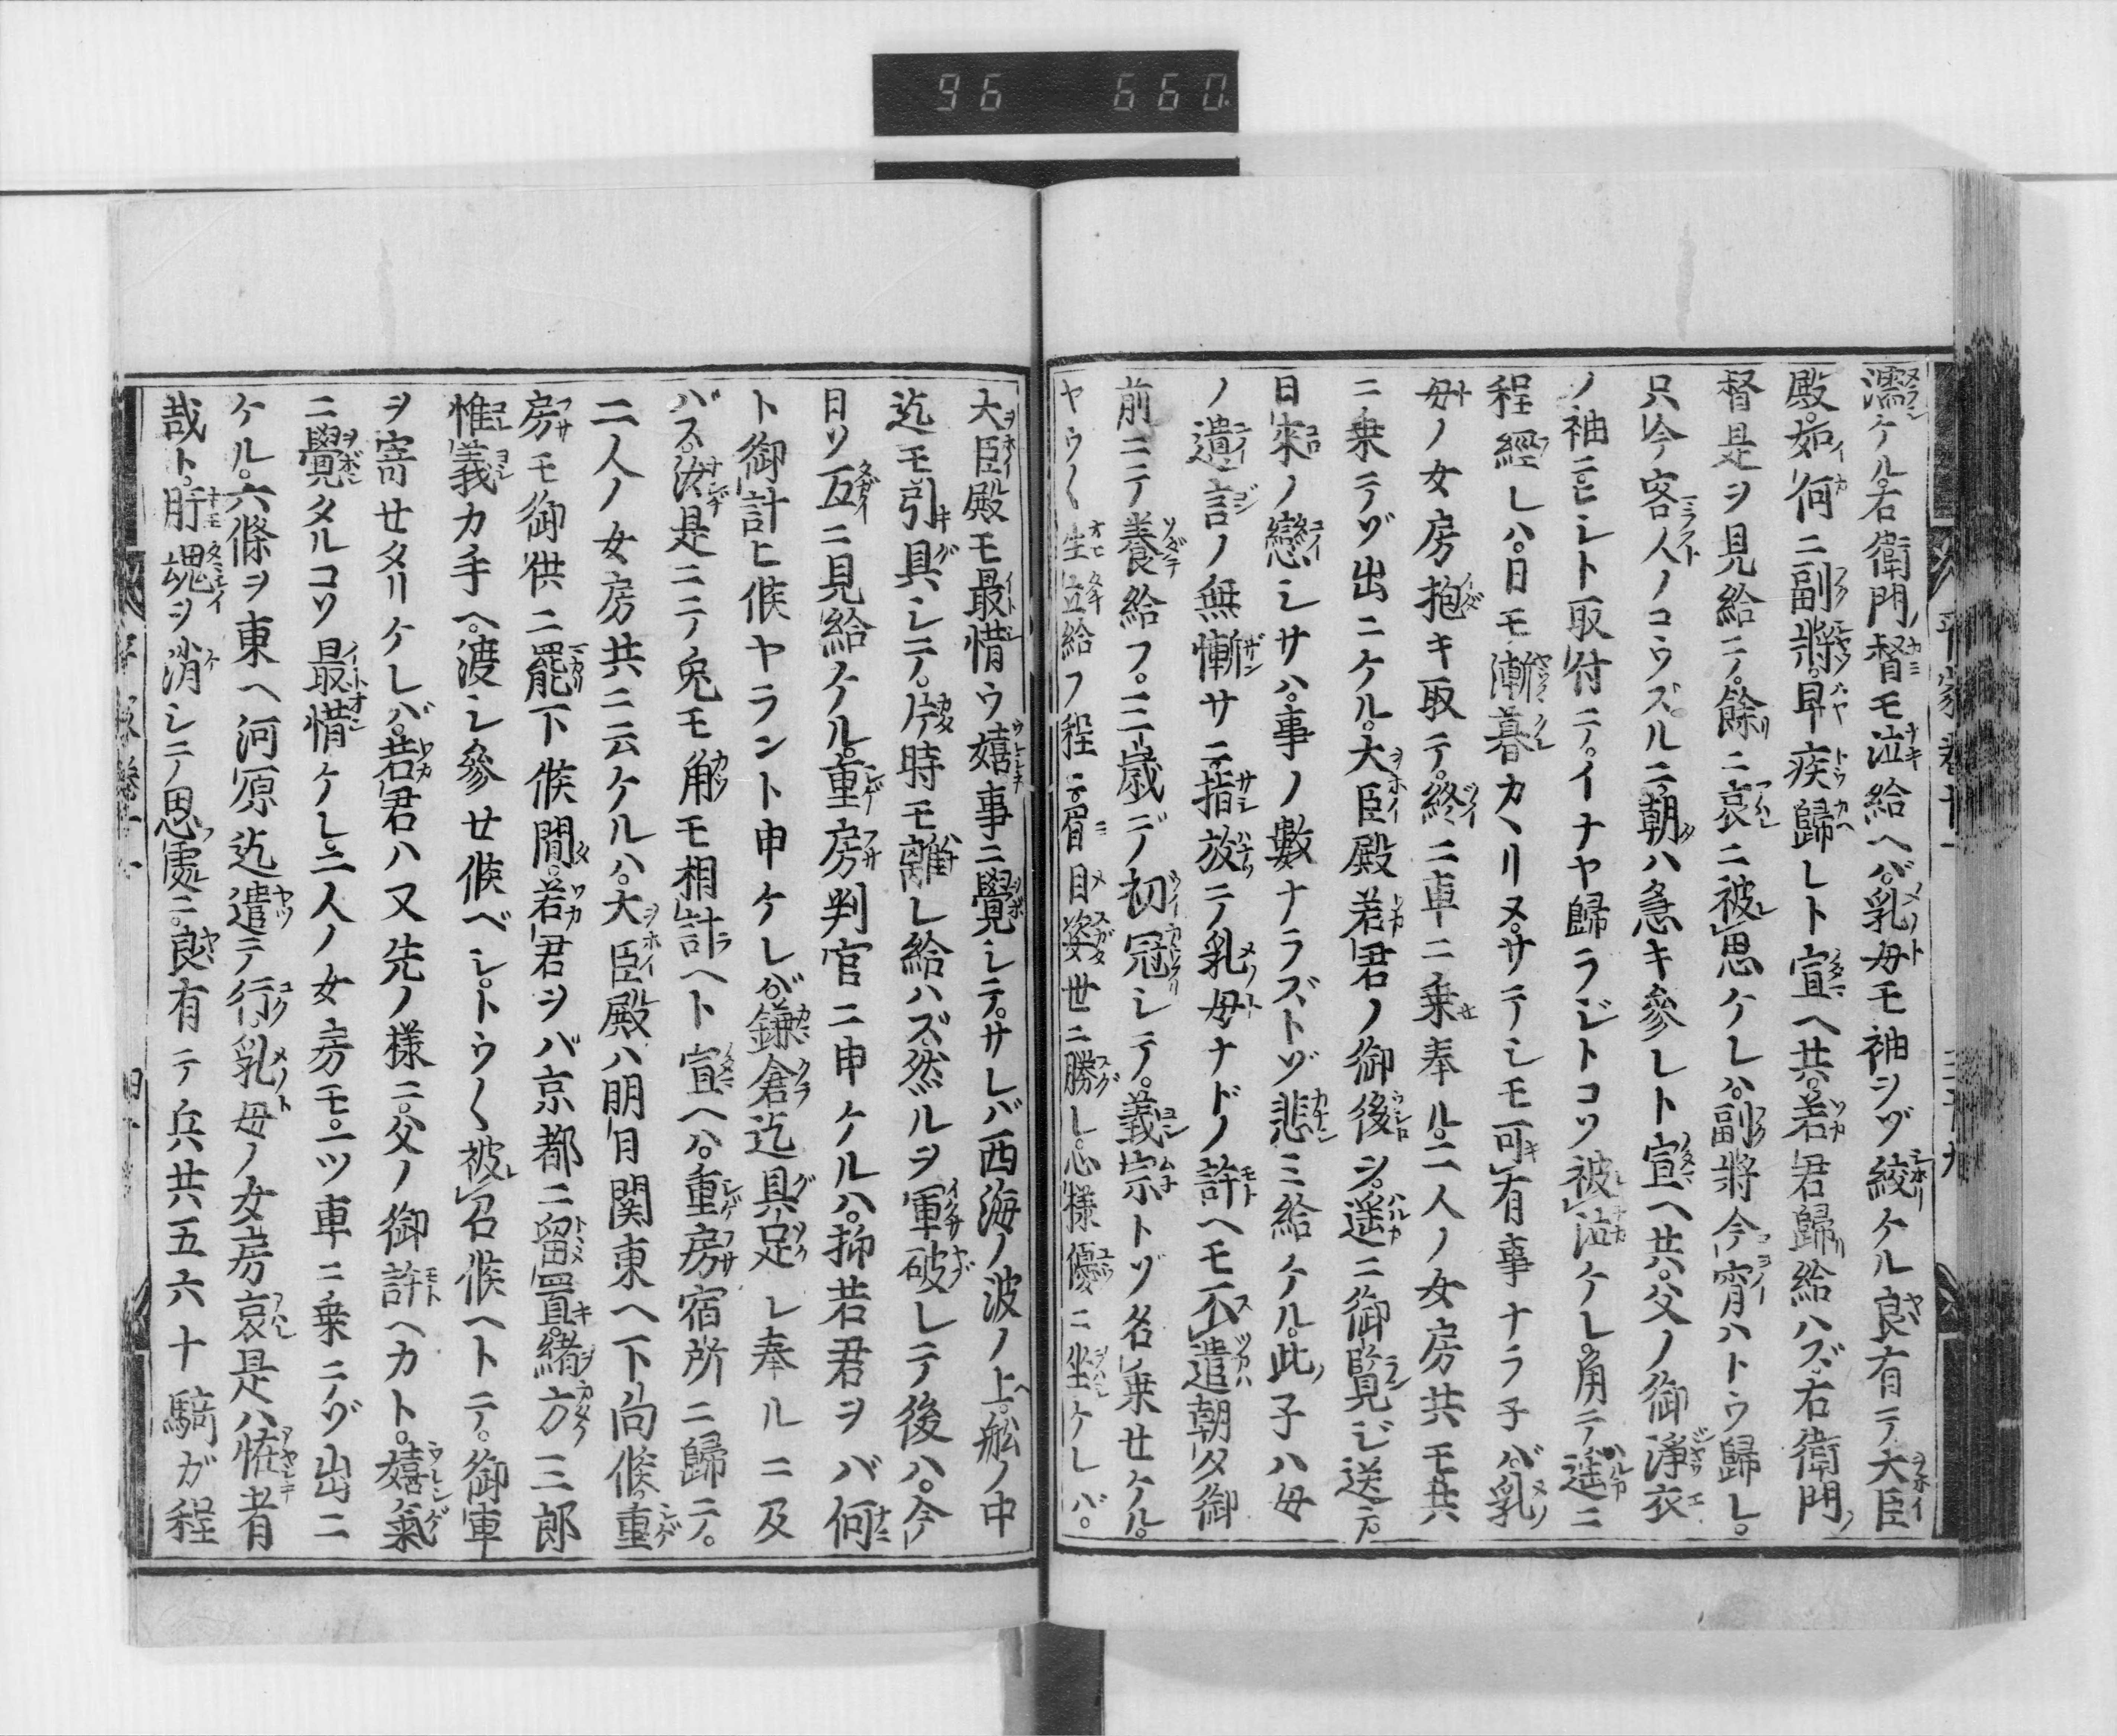 96 660
濡ケル。右衛門督モ泣給ヘバ。乳母モ袖ヲゾ絞ケル良有テ大臣
殿。如何ニ副將。早疾歸レト宣ヘ共。若君歸給ハズ。右衛門
督是ヲ見給ニテ。餘ニ哀ニ被思ケレハ。副將今宵ハトウ歸レ。
只今客人ノコウズルニ。朝ハ急キ參レト宣ヘ共。父ノ御淨衣
ノ袖ニヒシト取付ニテ。イナヤ歸ラジトコソ被泣ケレ。角テ遥ニ
程經レハ。日モ漸暮カヽリヌ。サテシモ可有事ナラ子バ。乳
母ノ女房抱キ取テ。終ニ車ニ乗奉ル。二人ノ女房共モ共
ニ乗テゾ出ニケル。大臣殿若君ノ御後ヲ。遥ニ御覧ジ送テ。
日来ノ戀シサハ。事ノ數ナラズトゾ悲ミ給ケル。此子ハ母
ノ遺言ノ無慚サニ。指放テ乳母ナドノ許ヘモ不遣朝夕御
前ニテ養給フ。三歳デ初冠シテ。義宗トゾ名乗セケル。
ヤウ〱生立給フ程ニ。眉目姿世ニ勝レ。心樣優ニ坐ケレバ。
大臣殿モ最惜ウ嬉事ニ覺シテ。サレバ西海ノ波ノ上。舩ノ中
迄モ引具シテ。片時モ離レ給ハズ。然ルヲ軍破レテ後ハ。今
日ソ互ニ見給ケル。重房判官ニ申ケルハ。抑若君ヲバ何
ト御計ヒ候ヤラント申ケレバ。鎌倉迄具足シ奉ルニ及
バス。汝是ニテ兔モ角モ相計ヘト宣ヘハ。重房宿所ニ歸テ。
二人ノ女房共ニ云ケルハ。大臣殿ハ明日関東ヘ下向候。重
房モ御供ニ罷下候間。若君ヲバ京都ニ留置。緒方三郎
惟義カ手ヘ。渡シ參セ候ベシ。トウ〱被召候ヘトテ。御車
ヲ寄せタリケレバ。若君ハ又先ノ樣ニ。父ノ御許ヘカト。嬉氣
ニ覺タルコソ最惜ケレ。二人ノ女房モ。一ツ車ニ乗テゾ出ニ
ケル。六條ヲ東ヘ河原迄遣テ行。乳母ノ女房哀是ハ恠者
哉ト。肝魂ヲ消シテ思處ニ。良有テ兵共五六十騎ガ程